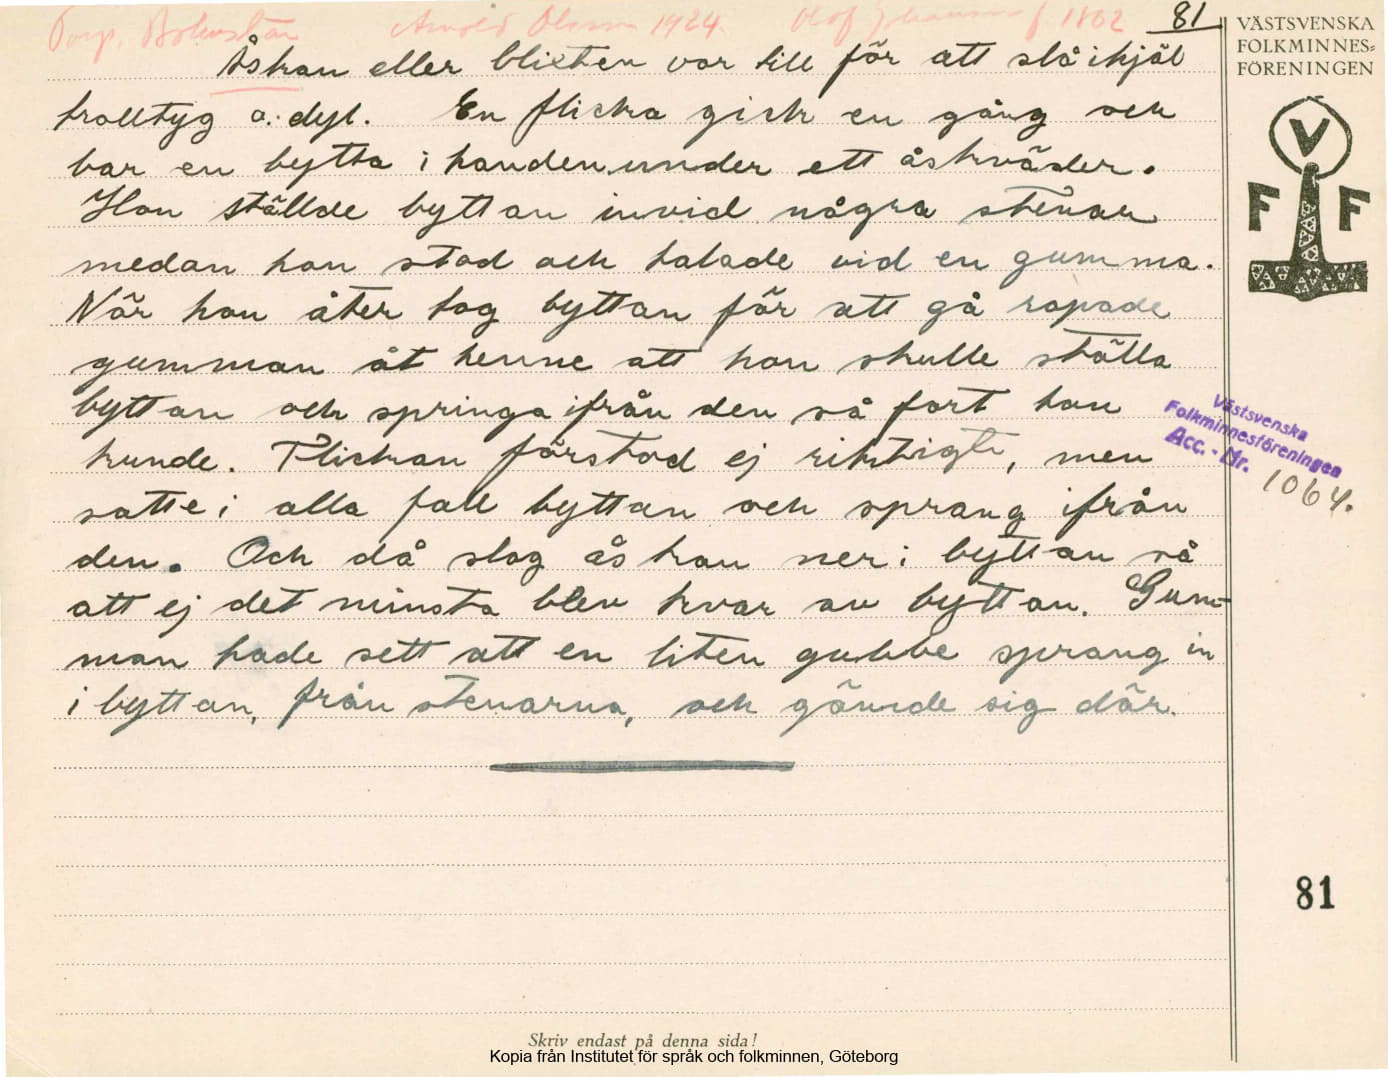 Torp, Bohuslän Arnold Olsson 1924. Olof Johansson f. 1862 81
Åskan eller blixten var till för att slå ihjäl
trolltyg o. dyl. En flicka gick en gång och
bar en bytta i handen under ett åskväder.
Hon ställde byttan invid några stenar
medan hon stod och talade vid en gumma.
När hon åter tog byttan för att gå ropade
gumman åt henne att hon skulle ställa
byttan och springa ifrån den så fort hon
kunde. Flickan förstod ej riktigt, men
satte i alla fall byttan och sprang ifrån
den. Och då slog åskan ner i byttan så
att ej det minsta blev kvar av byttan. Gum-
man hade sett att en liten gubbe sprang in
i byttan, från stenarna, och gömde sig där.
VÄSTSVENSKA
FOLKMINNES=
FÖRENINGEN
V
F F
Västsvenska
Folkminnesföreningen
Acc. - Nr. 1064.
81
Skriv endast på denna sida!
Kopia från Institutet för språk och folkminnen, Göteborg